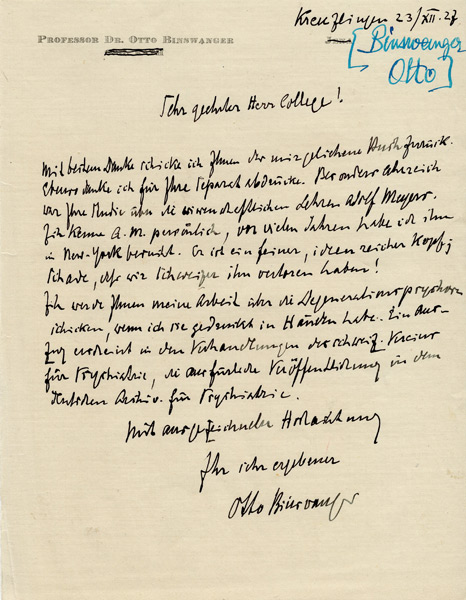 Kreuzlingen 23/XII. 27
PROFESSOR DR. OTTO BINSWANGER
[Binswanger
Otto]
Sehr geehrter Herr College!
Mit bestem Danke schicke ich Ihnen das mir geliehene Buch zurück.
Ebenso danke ich für Ihre Separatabdrücke. Besonders lehrreich
war Ihre Studie über die wissenschaftlichen Lehren Adolf Meyers.
Ich kenne A. M. persönlich, vor vielen Jahren habe ich ihn
in New-York besucht. Er ist ein feiner, ideenreicher Kopf;
Schade, daß wir Schweizer ihn verloren haben!
Ich werde Ihnen meine Arbeit über die Degenerationspsychosen
schicken, wenn ich sie gedruckt in Händen habe. Ein Aus-
zug erscheint in den Verhandlungen des schweiz. Vereins
für Psychiatrie, die ausführliche Veröffentlichung in dem
deutschen Archiv für Psychiatrie.
Mit ausgezeichneter Hochachtung
Ihr sehr ergebener
Otto Binswanger